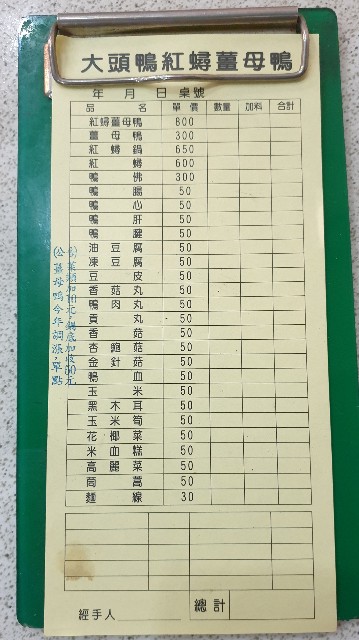 大頭鴨紅蟳薑母鴨
年 月 日 桌號
品名 單價 數量 加料 合計
紅蟳薑母鴨 800
薑母鴨 300
紅蟳鍋 650
紅蟳 600
鴨佛 300
鴨腸 50
鴨心 50
鴨肝 50
鴨腱 50
油豆腐 50
凍豆腐 50
豆皮 50
香菇丸 50
鴨肉丸 50
貢丸 50
香菇 50
杏鮑菇 50
金針菇 50
鴨血 50
玉米 50
黑木耳 50
玉米筍 50
花椰菜 50
米血糕 50
高麗菜 50
茼蒿 50
麵線 30
總計
經手人
薑母鴨今年調漲，單點